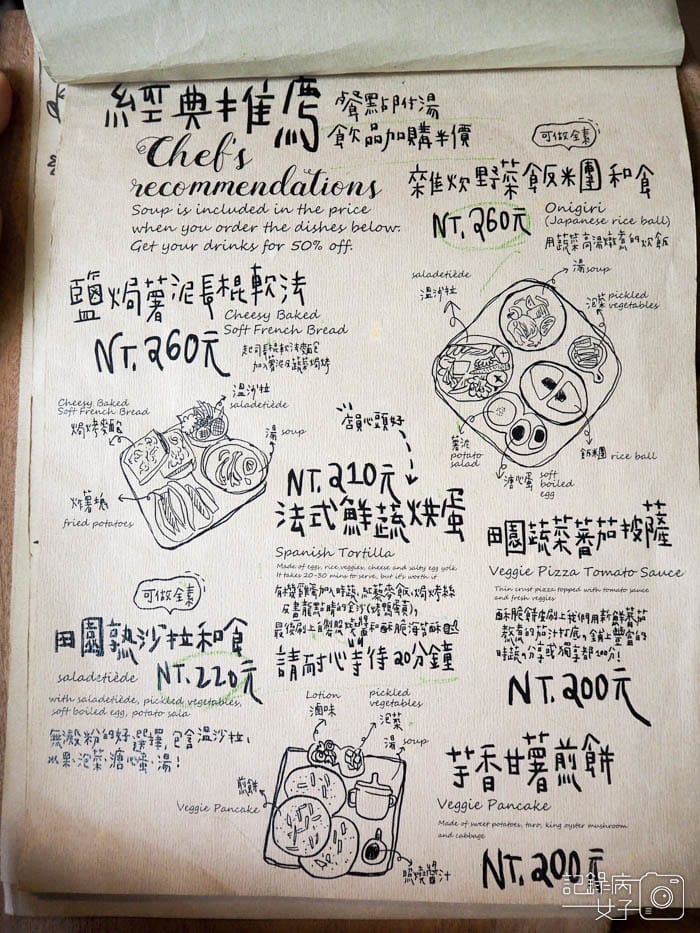 經典推薦
餐點即附湯
飲品加購半價
Chef's
recommendations
Soup is included in the price
when you order the dishes below.
Get your drinks for 50% off.
可做全素
雜炊野菜飯米團和食
NT. 260元
Onigiri
(Japanese rice ball)
用蔬菜高湯燉煮的炊飯
鹽焗薯泥長棍軟法
Cheesy Baked
Soft French Bread
NT. 260元
起司長棍軟法麵包
加入薯泥及蔬菜焗烤
Cheesy Baked
Soft French Bread
焗烤麵包
溫沙拉
saladetiède
湯 soup
炸薯塊
fried potatoes
saladetiède
溫沙拉
湯 soup
泡菜 pickled
vegetables
薯泥
potato
salad
溏心蛋
soft
boiled
egg
飯米團 rice ball
店員心頭好
NT. 210元
法式鮮蔬烘蛋
Spanish Tortilla
Made of eggs, rice, veggies, cheese and salty egg yolk.
It takes 20-30 mins to serve, but it's worth it
最後刷上自製照燒醬和酥脆海苔酥
請耐心等待20分鐘
可做全素
田園熟沙拉和食
saladetiède
NT. 220元
with saladetiède, pickled vegetables,
soft boiled egg, potato sala
無澱粉的好選擇,包含溫沙拉、
水果、泡菜、溏心蛋、湯!
田園蔬菜蕃茄披薩
Veggie Pizza Tomato Sauce
Thin crust pizza topped with tomato sauce
and fresh veggies
酥脆餅皮刷上我們用新鮮蕃茄
熬煮的茄汁打底,鋪上豐富的
時蔬,分享或獨享都100分!
NT. 200元
Lotion
滷味
pickled
vegetables
泡菜
湯 soup
煎餅
Veggie Pancake
照燒醬汁
芋香甘薯煎餅
Veggie Pancake
Made of sweet potatoes, taro, king oyster mushroom
and cabbage
NT. 200元
記錄病
女子